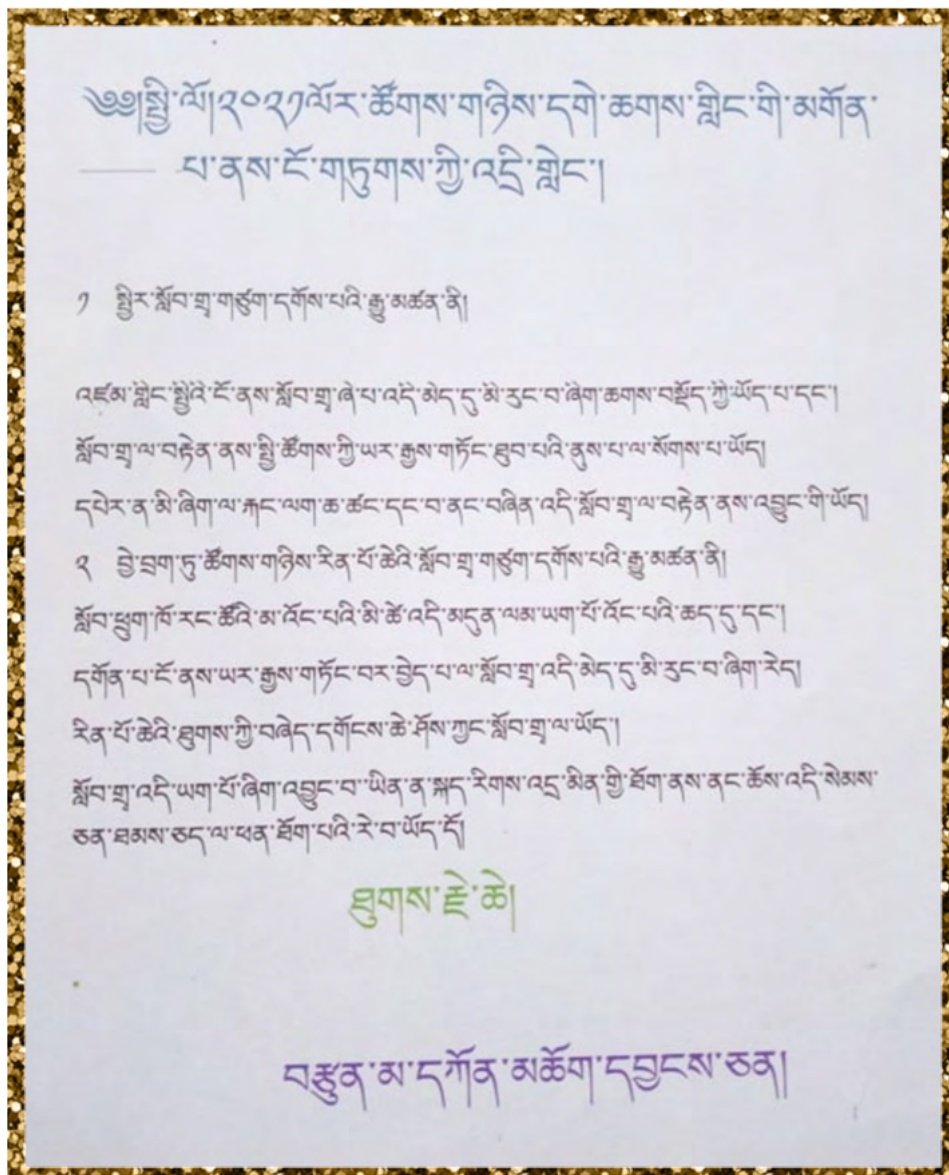 ༄༅།སྤྱི་ལོ།༢༠༢༡ལོར་ཚོགས་གཉིས་དགེ་ཆགས་གླིང་གི་མགོན་
པ་ནས་ངོ་གཏུགས་ཀྱི་འདྲི་གླེང་།
༡ སྤྱིར་སློབ་གྲྭ་གཙུག་དགོས་པའི་རྒྱུ་མཚན་ནི།
འཛམ་གླིང་སྤྱིའི་ངོ་ནས་སློབ་གྲྭ་ཞེ་པ་འདི་མེད་དུ་མི་རུང་བ་ཞིག་ཆགས་བསྡོད་ཀྱི་ཡོད་པ་དང་།
སློབ་གྲྭ་ལ་བརྟེན་ནས་སྤྱི་ཚོགས་ཀྱི་ཡར་རྒྱས་གཏོང་ཐུབ་པའི་ནུས་པ་ལ་སོགས་པ་ཡོད།
དཔེར་ན་མི་ཞིག་ལ་རྐང་ལག་ཆ་ཚང་དང་བ་ནང་བཞིན་འདི་སློབ་གྲྭ་ལ་བརྟེན་ནས་འབྱུང་གི་ཡོད།
༢ བྱེ་བྲག་ཏུ་ཚོགས་གཉིས་རིན་པོ་ཆེའི་སློབ་གྲྭ་གཙུག་དགོས་པའི་རྒྱུ་མཚན་ནི།
སློབ་ཕྲུག་ཁོ་རང་ཚོའི་མ་འོང་པའི་མི་ཚེ་འདི་མདུན་ལམ་ཡག་པོ་འོང་པའི་ཆད་དུ་དང་།
དགོན་པ་ངོ་ནས་ཡར་རྒྱས་གཏོང་བར་བྱེད་པ་ལ་སློབ་གྲྭ་འདི་མེད་དུ་མི་རུང་བ་ཞིག་རེད།
རིན་པོ་ཆེའི་ཐུགས་ཀྱི་བཞེད་དགོངས་ཆེ་ཤོས་ཀྱང་སློབ་གྲྭ་ལ་ཡོད།
སློབ་གྲྭ་འདི་ཡག་པོ་ཞིག་འབྱུང་བ་ཡིན་ན་སྐད་རིགས་འདྲ་མིན་གྱི་ཐོག་ནས་ནང་ཆོས་འདི་སེམས་
ཅན་ཐམས་ཅད་ལ་ཕན་ཐོག་པའི་རེ་བ་ཡོད་དོ།
ཐུགས་རྗེ་ཆེ།
བཙུན་མ་དཀོན་མཆོག་དབྱངས་ཅན།